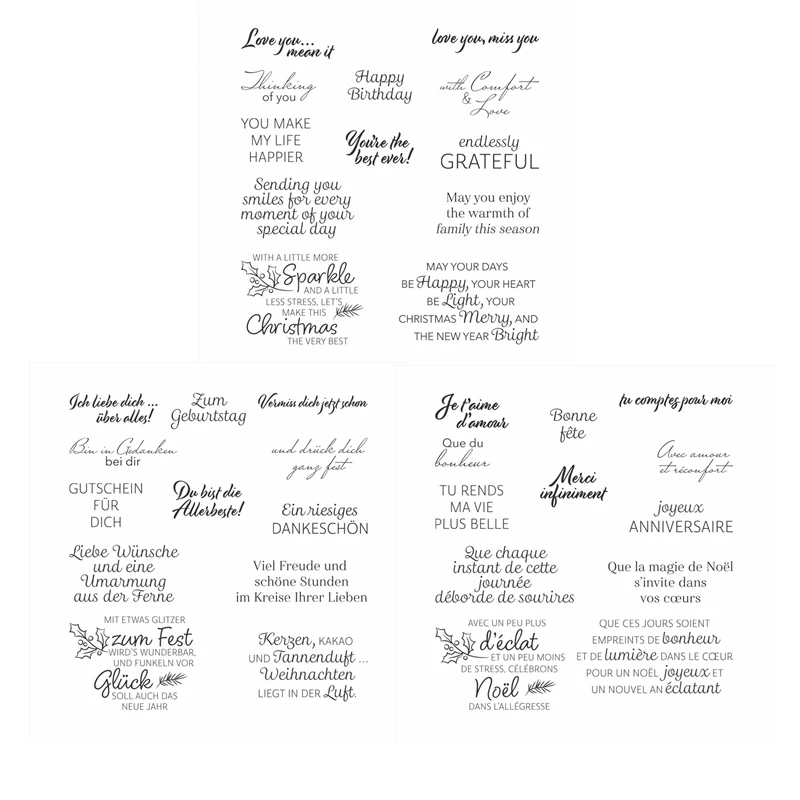 Love you...
mean it
love you, miss you
Thinking
of you
Happy
Birthday
with Comfort
&
Love
YOU MAKE
MY LIFE
HAPPIER
You're the
best ever!
endlessly
GRATEFUL
Sending you
smiles for every
moment of your
special day
May you enjoy
the warmth of
family this season
WITH A LITTLE MORE
Sparkle
AND A LITTLE
LESS STRESS, LET'S
MAKE THIS
Christmas
THE VERY BEST
MAY YOUR DAYS
BE Happy, YOUR HEART
BE Light, YOUR
CHRISTMAS Merry, AND
THE NEW YEAR Bright
Ich liebe dich ...
über alles!
Zum
Geburtstag
Vermiss dich jetzt schon
Bin in Gedanken
bei dir
und drück dich
ganz fest
GUTSCHEIN
FÜR
DICH
Du bist die
Allerbeste!
Ein riesiges
DANKESCHÖN
Liebe Wünsche
und eine
Umarmung
aus der Ferne
Viel Freude und
schöne Stunden
im Kreise Ihrer Lieben
MIT ETWAS GLITZER
zum Fest
WIRD'S WUNDERBAR,
UND FUNKELN VOR
Glück
SOLL AUCH DAS
NEUE JAHR
Kerzen, KAKAO
UND Tannenduft ...
Weihnachten
LIEGT IN DER Luft.
Je t'aime
d'amour
Bonne
fête
tu comptes pour moi
Que du
bonheur
Avec amour
et réconfort
TU RENDS
MA VIE
PLUS BELLE
Merci
infiniment
joyeux
ANNIVERSAIRE
Que chaque
instant de cette
journée
déborde de sourires
Que la magie de Noël
s'invite dans
vos cœurs
AVEC UN PEU PLUS
d'éclat
ET UN PEU MOINS
DE STRESS, CÉLÉBRONS
Noël
DANS L'ALLÉGRESSE
QUE CES JOURS SOIENT
EMPREINTS DE bonheur
ET DE lumière DANS LE CŒUR
POUR UN NOËL joyeux ET
UN NOUVEL AN éclatant